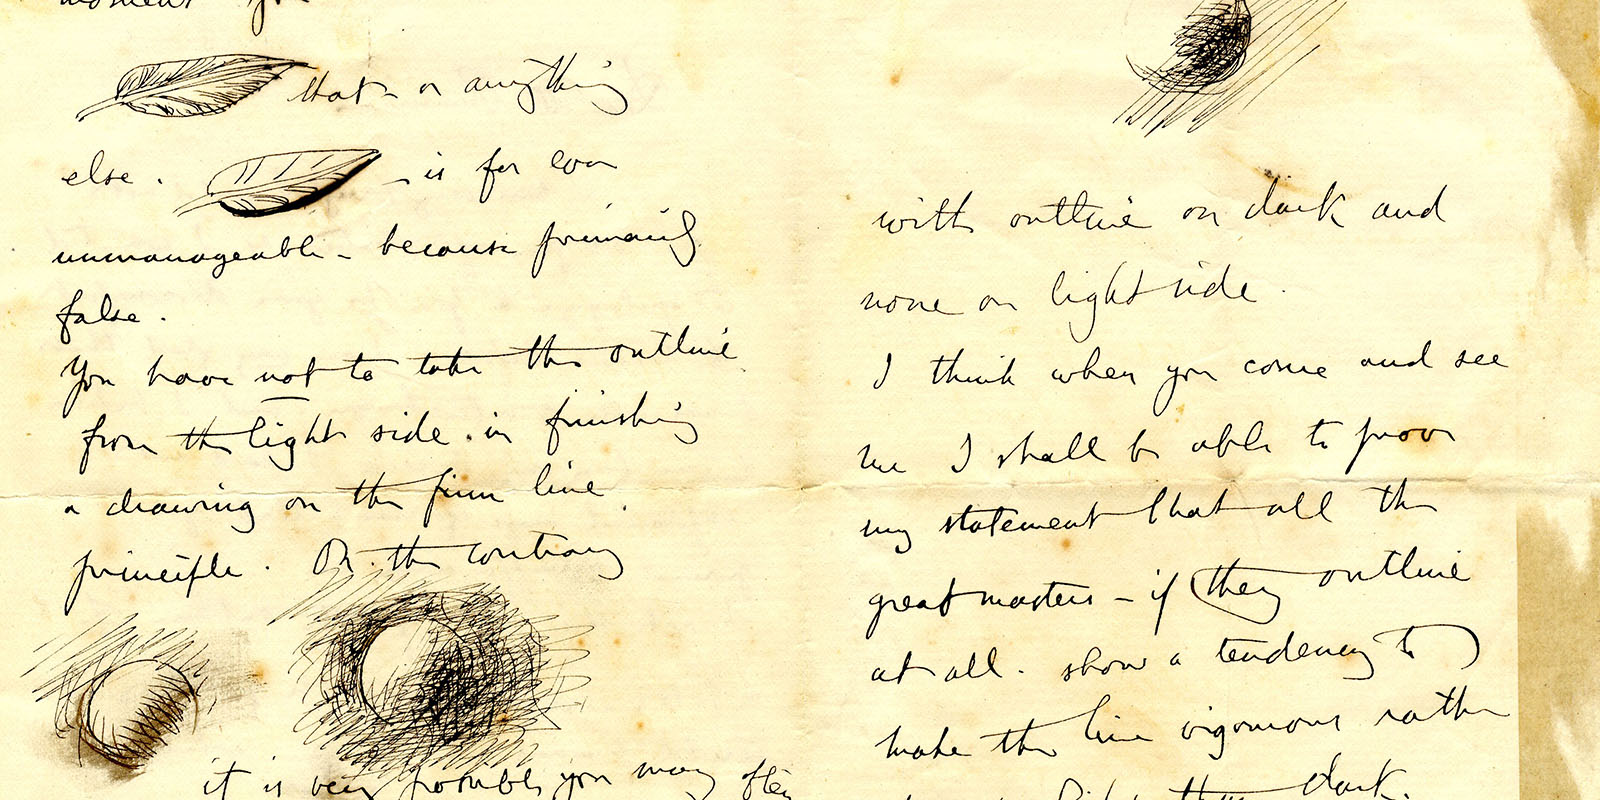 moment you
that - or anything
else. - is for ever
unmanageable - because primarily
false.
You have not to take the outline
from the light side. in finishing
a drawing on the firm line
principle. On the contrary
it is very possible you may often
with outline on dark and
none on light side.
I think when you come and see
me I shall be able to prove
my statement that all the
great masters - if they outline
at all. show a tendency to
make the line vigorous rather
dark.